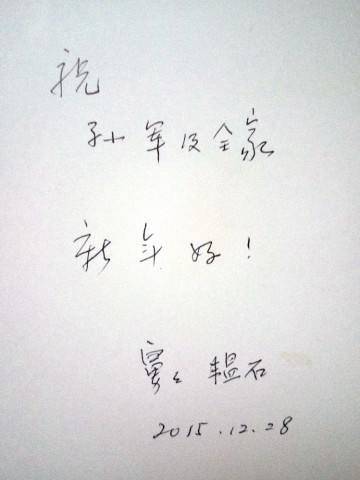 祝
孙军及全家
新年好！
韫石
2015.12.28